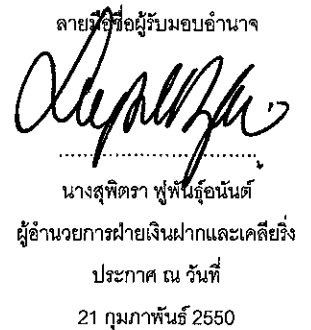 ลายมือชื่อผู้รับมอบอำนาจ
................................
นางสุพิตรา พู่พันธุ์อนันต์
ผู้อำนวยการฝ่ายเงินฝากและเคลียริ่ง
ประกาศ ณ วันที่
21 กุมภาพันธ์ 2550